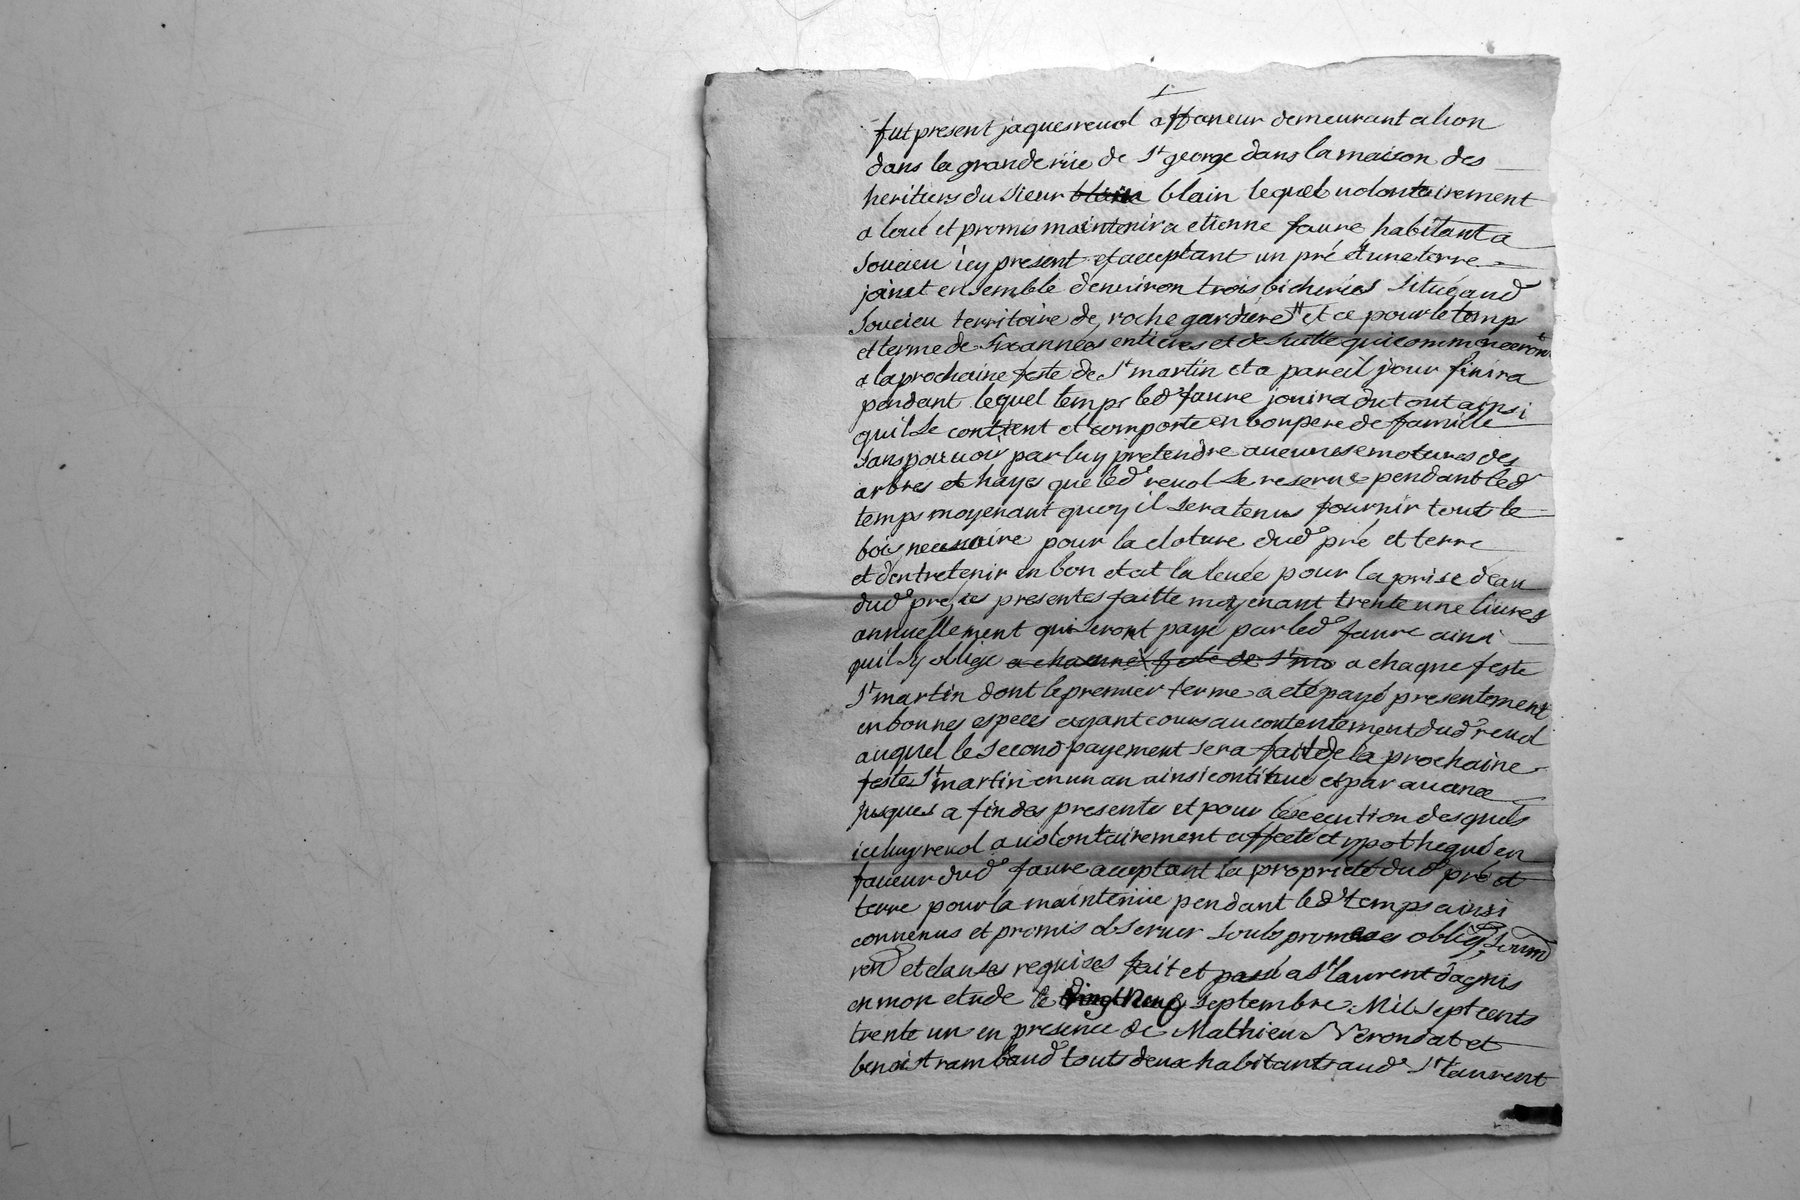 fut present jaques revol affaneur demeurant a lion
dans la grande rüe de St george dans la maison des
heritiers du sieur blain blain lequel volontairement
a loué et promis maintenir a etienne faure habitant a
Soucieu icy present et acceptant un pré et une terre
joinct ensemble denviron trois bicherées situé aud
Soucieu territoire de roche gardiere et ce pour le temp
et terme de six années entieres et de suitte qui commenceront
a la prochaine feste de St martin et a pareil jour finira
pendant lequel temps led faure jouira du tout ainsi
quil se contient et comporte en bon pere de famille
sans pouvoir par luy pretendre aucunes emotures des
arbres et hayes que led revol se reserve pendant led
temps moyenant quoy il sera tenus fournir tout le
bois necessaire pour la cloture dud pré et terre
et dentretenir en bon etat la levée pour la prise deau
dud pré, les presentes faitte moyenant trente une livres
annuellement qui seront payé par led faure ainsi
quil sy oblige a chacune feste de St ma a chaqne feste
St martin dont le premier terme a eté payé presentement
en bonnes especes ayant cours au contentement dud revol
auquel le second payement sera fait de la prochaine
feste St martin en un an ainsi continué et par avance
jusques a fin des presente et pour lexecution desquels
iceluy revol a volontairement affecté et ypothequé en
faveur dud faure acceptant la propriété dud pré et
terre pour la maintenüe pendant led temps ainsi
convenus et promis observer soubs promesses oblig, soum
ren et clauses requises fait et passé a St laurent dagnis
en mon etude le vingt neuf septembre Mil sept cents
trente un en presence de Mathieu Verondat et
benoist rambaud touts deux habitants aud St laurent